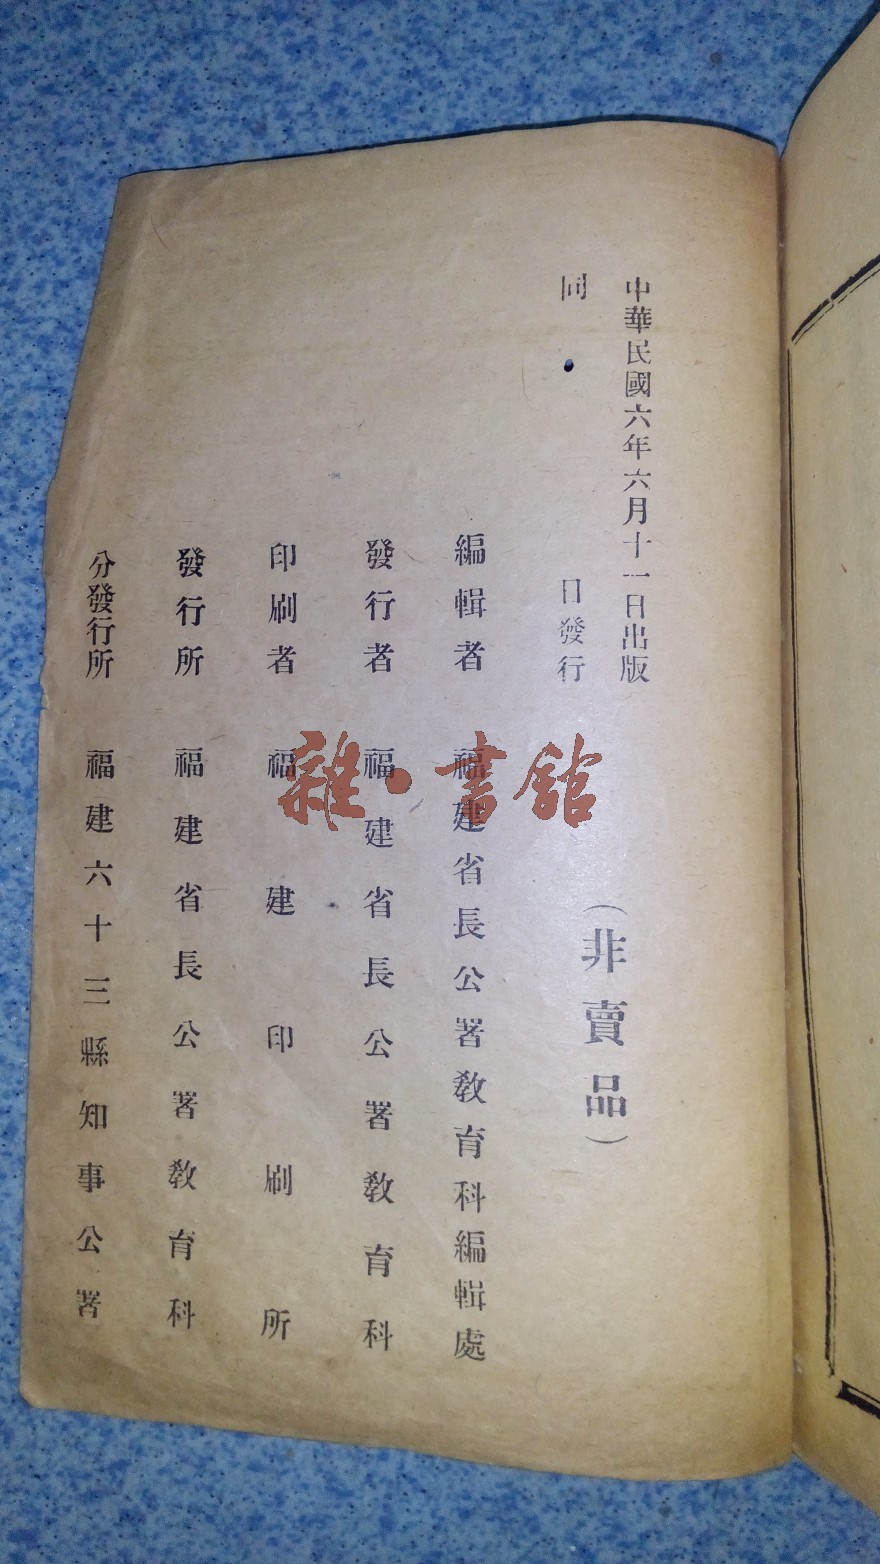 中華民國六年六月十一日出版
同日發行
（非賣品）
編輯者 福建省長公署教育科編輯處
發行者 福建省長公署教育科
印刷者 福建印刷所
發行所 福建省長公署教育科
分發行所 福建六十三縣知事公署
雜·書館